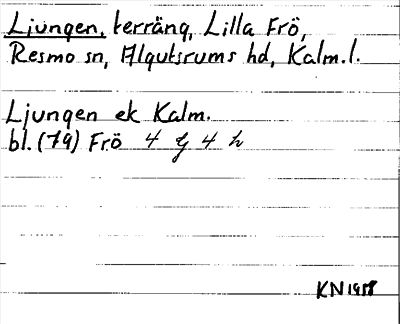 Ljungen, terräng, Lilla Frö,
Resmo sn, Algutsrums hd, Kalm.l.
Ljungen ek Kalm.
bl. (79) Frö 4 g 4 h
KN 1958